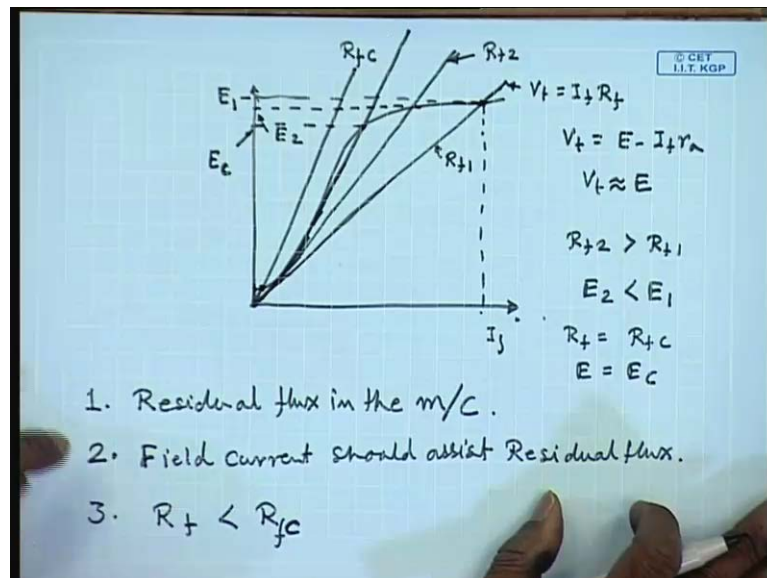 © CET
I.I.T. KGP
RfC
Rf2
E1
Vt = If Rf
E2
Vt = E - If ra
Ec
Rf1
Vt ≈ E
Rf2 > Rf1
E2 < E1
If
Rf = RfC
E = EC
1. Residual flux in the m/c.
2. Field current should assist Residual flux.
3. Rf < RfC